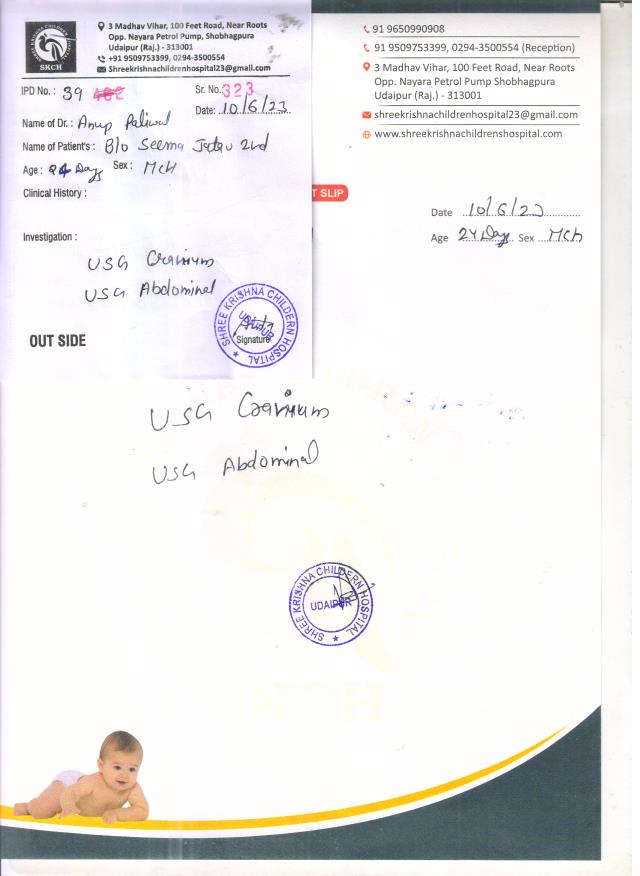 3 Madhav Vihar, 100 Feet Road, Near Roots
Opp. Nayara Petrol Pump, Shobhagpura
Udaipur (Raj.) - 313001
+91 9509753399, 0294-3500554
Shreekrishnachildrenhospital23@gmail.com
SHREE KRISHNA CHILDREN
SKCH
IPD No. : 39
Sr. No. 323
Date: 10/6/23
Name of Dr. : Anup Paliwal
Name of Patient's : B/o Seema 2nd
Age : 24 Day Sex : MCH
Clinical History :
Investigation :
USG Cranium
USG Abdominal
OUT SIDE
SHREE KRISHNA CHILDERN HOSPITAL
UDAIPUR
Signature
91 9650990908
91 9509753399, 0294-3500554 (Reception)
3 Madhav Vihar, 100 Feet Road, Near Roots
Opp. Nayara Petrol Pump Shobhagpura
Udaipur (Raj.) - 313001
shreekrishnachildrenhospital23@gmail.com
www.shreekrishnachildrenshospital.com
T SLIP
Date 10/6/23
Age 24 Day Sex MCH
USG Cranium
USG Abdominal
SHREE KRISHNA CHILDERN HOSPITAL
UDAIPUR
SKCH